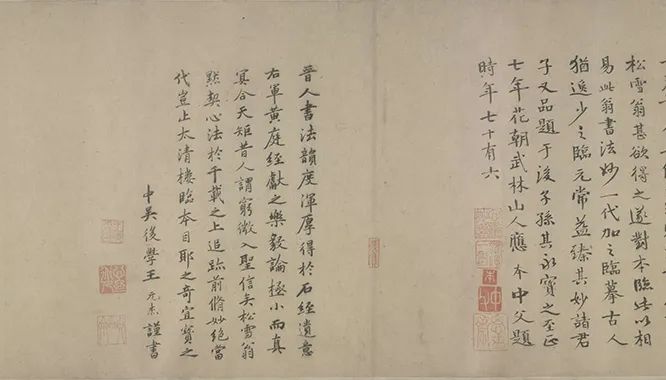 松雪翁甚欲得之遂對本臨此以相
易此翁書法妙一代加之臨摹古人
猶逸少之臨元常益臻其妙諸君
子又品題于後子孫其永寶之至正
七年花朝武林山人應本中父題
時年七十有六
晉人書法韻度渾厚得於石經遺意
右軍黃庭經獻之樂毅論極小而真
冥合天矩昔人謂窮微入聖信矣松雪翁
黙契心法於千載之上追跡前脩妙絕當
代豈止太清樓臨本目耶之奇宜寶之
中吳後學王元杰謹書